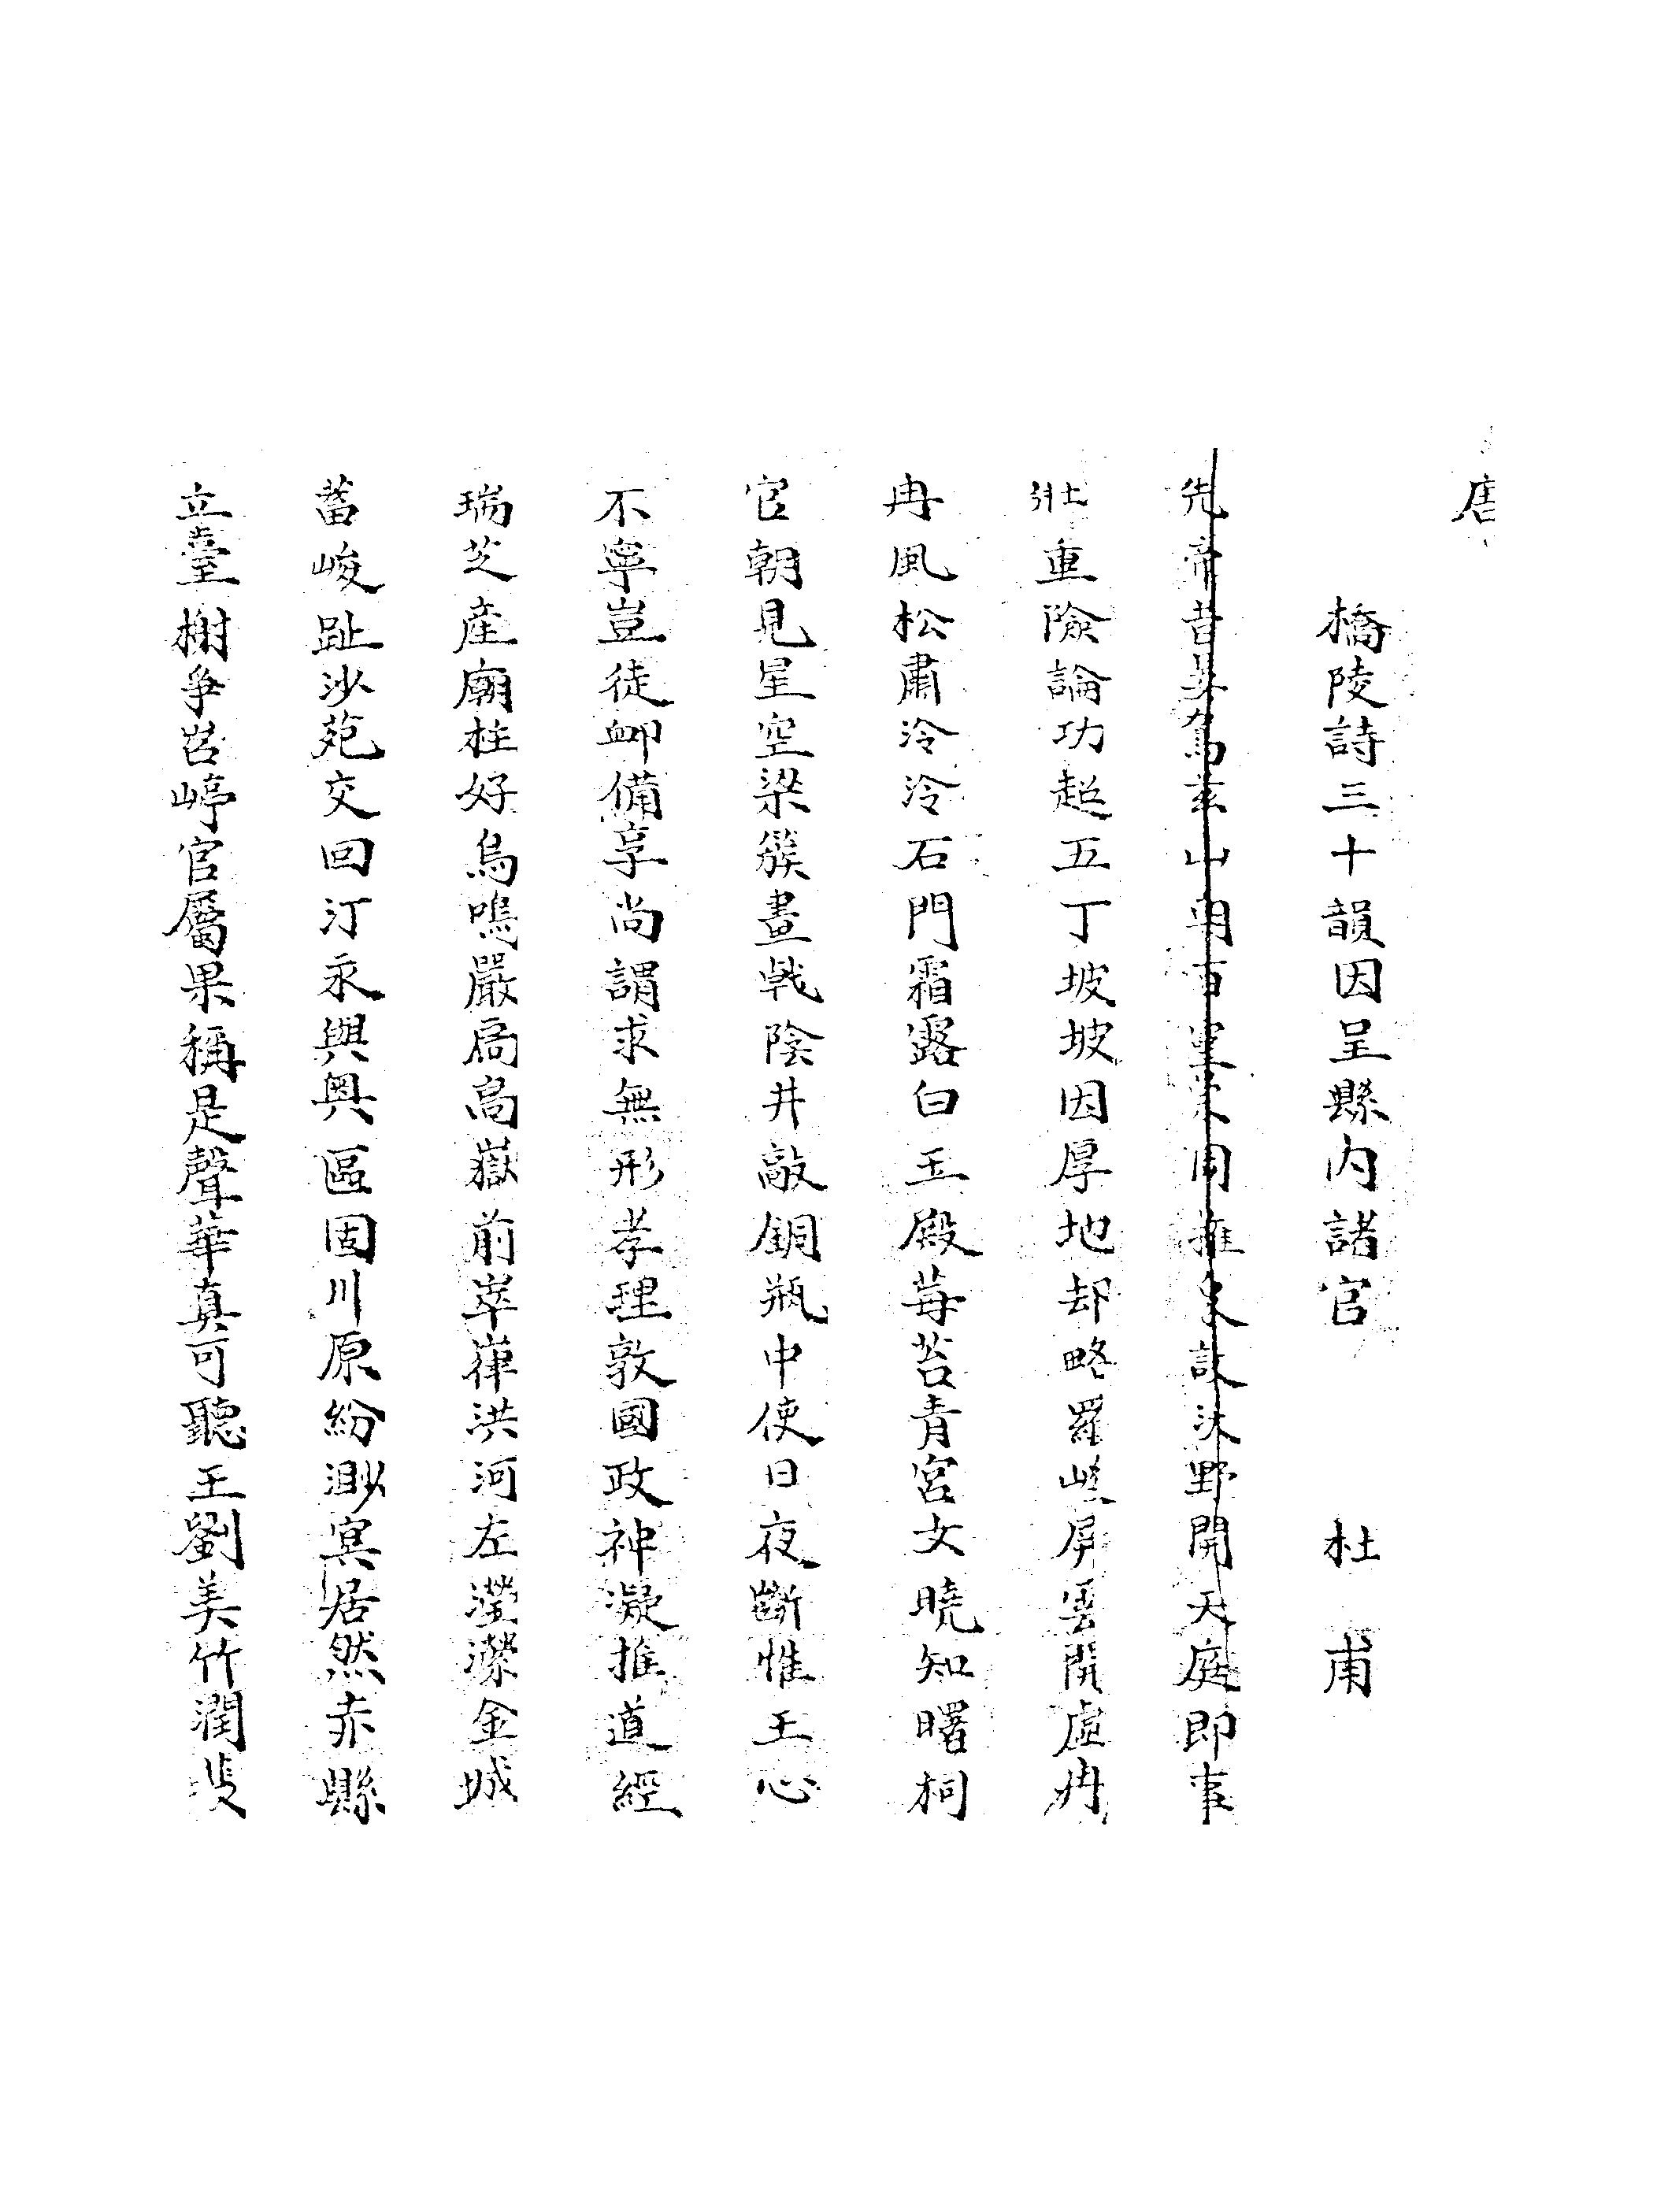 唐
橋陵詩三十韻因呈縣内諸官 杜甫
先帝昔晏駕兹山朝百靈崇岡擁象設沃野開天庭即事
壯重險論功超五丁坡坡因厚地却略羅峻屏雲闕虛冉
冉風松肅泠泠石門霜露白玉殿莓苔青宮女曉知曙祠
官朝見星空梁簇畫㦸陰井敲銅瓶中使日夜斷惟王心
不寧豈徒䘏備享尚謂求無形孝理敦國政神凝推道經
瑞芝産廟柱好鳥鳴嚴扃高嶽前嵂崒洪河左瀅濙金城
蓄峻趾沙苑交回汀永與奥區固川原紛渺冥居然赤縣
立臺榭爭岧嵉官屬果稱是聲華真可聽王劉美竹潤裴